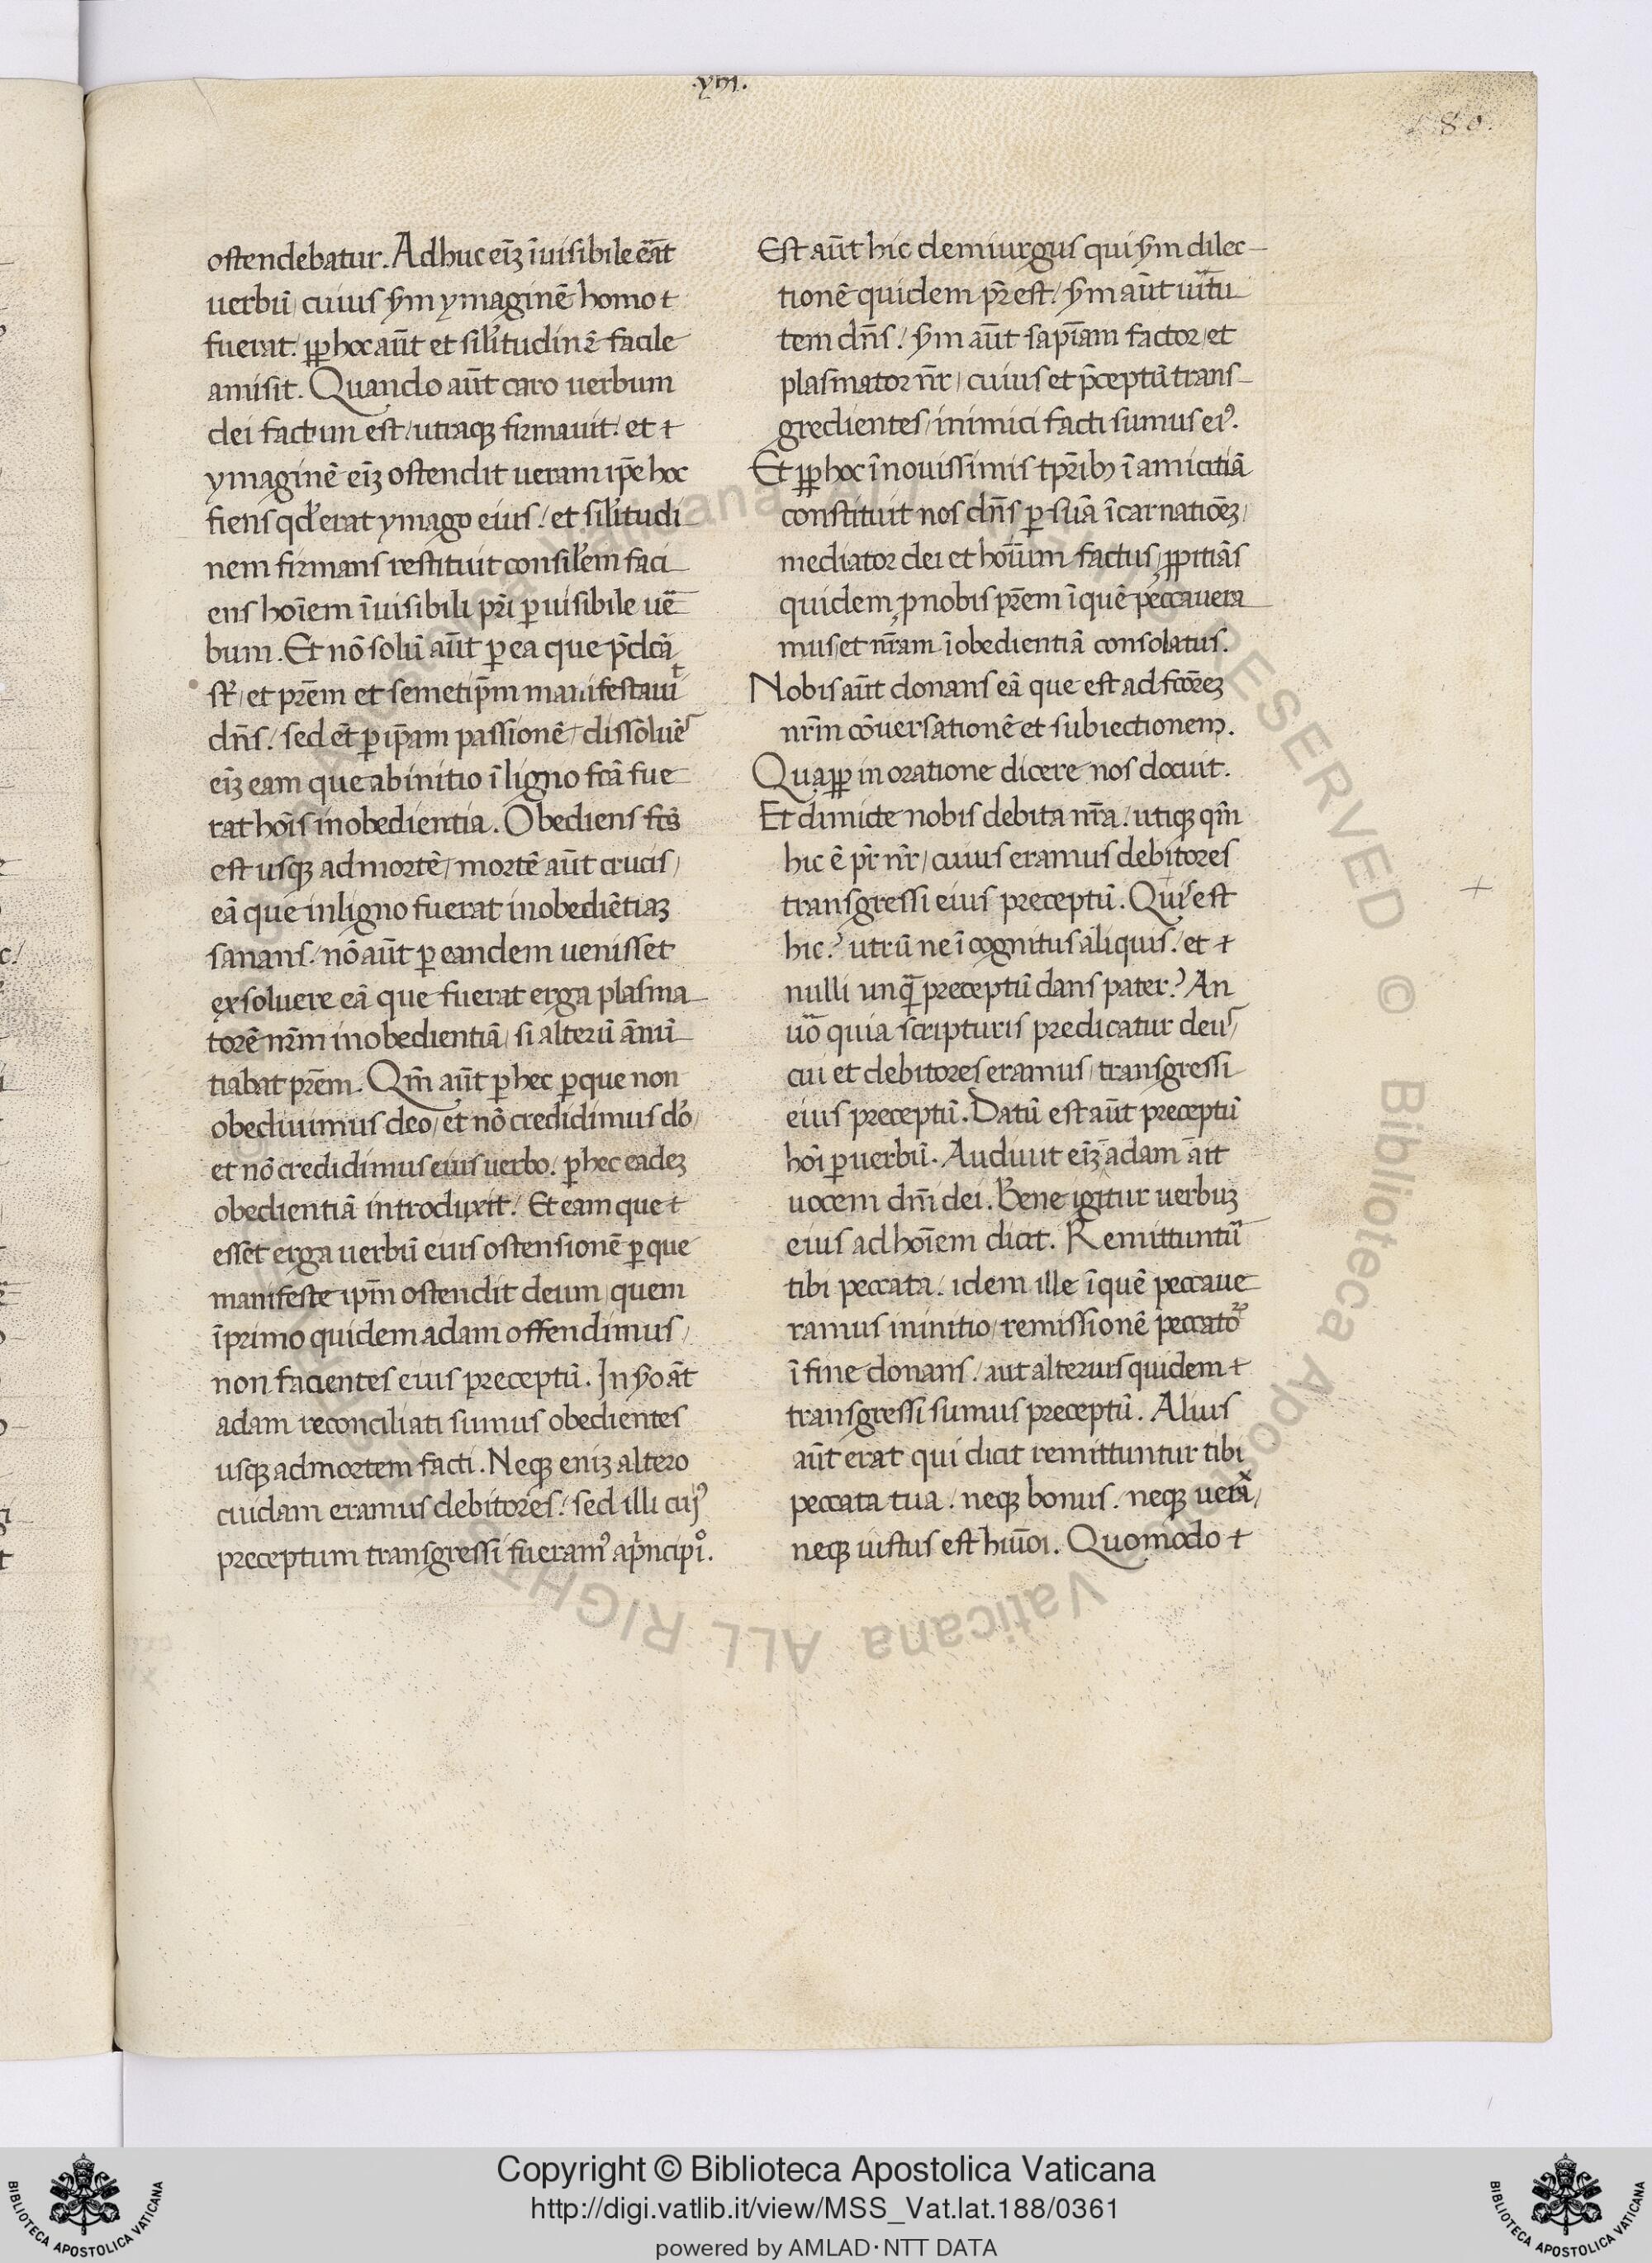 .xııı.
180.
ostendebatur. Adhuc eīȝ īuisibile ēāt
uerbū, cuius s̄m ymaginē homo t
fuerat. ꝓp hoc aūt et sil'itudinē facile
amisit. Quando aūt caro uerbum
dei factum est, utraqȝ firmauit. et t
ymaginē eīȝ ostendit ueram ip̄e hoc
fiens qd' erat ymago eius, et sil'itudi
nem firmans restituit consil'em faci
ens hoīem īuisibili pr̄i ꝑ uisibile uē
bum. Et nō solū aūt ꝑ ea que p̄dc̄a
st̄, et pr̄em et semetip̄m manifestauit
dn̄s, sed et̄ ꝑ ip̄am passionē, dissoluēs
eīȝ eam que ab initio ī ligno fc̄a fue
rat hoīs inobedientia. Obediens fc̄s
est usqȝ ad mortē, mortē aūt crucis,
eā que in ligno fuerat inobediētiaȝ
sanans. nō aūt ꝑ eandem uenisset
exsoluere eā que fuerat erga plasma
torē nr̄m inobedientiā, si alterū ānū
tiabat pr̄em. Qm̄ aūt ꝑ hec ꝑ que non
obediuimus deo, et nō credidimus do,
et nō credidimus eius uerbo. ꝑ hec eadeȝ
obedientiā introduxit. Et eam que t
esset erga uerbū eius ostensionē ꝑ que
manifeste ip̄m ostendit deum, quem
ī primo quidem adam offendimus,
non facientes eius preceptū. In s̄o āt
adam reconciliati sumus obedientes
usqȝ ad mortem facti. Neqȝ eniȝ altero
cuidam eramus debitores, sed illi cujꝰ
preceptum transgressi fueramꝰ a pͥncipiͦ.
Est aūt hic demiurgus qui s̄m dilec
tionē quidem pr̄ est, s̄m aūt uir̄tu
tem dn̄s, s̄m aūt sapīam factor, et
plasmator nr̄, cuius et p̄ceptū trans
gredientes, inimici facti sumus eiꝰ.
Et ꝓp hoc ī nouissimis tpr̄ibȝ ī amicitiā
constituit nos dn̄s ꝑ suā īcarnatiōeȝ,
mediator dei et hoīum factus, ꝓpitiās
quidem ꝓ nobis pr̄em ī quē peccauera
mus, et nr̄am īobedientiā consolatus.
Nobis aūt donans eā que est ad fc̄oreȝ
nr̄m cōuersationē et subiectionem.
Quaꝓp in oratione dicere nos docuit.
Et dimicte nobis debita nr̄a. utiqȝ qm̄
hic ē pr̄ nr̄, cuius eramus debitores
transgressi eius preceptū. Quis est
hic? utrū ne īcognitus aliquis. et t
nulli unqᷓ preceptū dans pater? An
uō quia scripturis predicatur deus,
cui et debitores eramus, transgressi
eius preceptū. Datū est aūt preceptū
hoī ꝑ uerbū. Audiuit eīȝ adam ait
uocem dn̄i dei. Bene igitur uerbuȝ
eius ad hoīem dicit. Remittuntᷓ
tibi peccata. idem ille ī quē peccaue
ramus in initio, remissionē peccatoꝝ
ī fine donans, aut alterius quidem t
transgressi sumus preceptū. Alius
aūt erat qui dicit remittuntur tibi
peccata tua. neqȝ bonus. neqȝ uerax,
neqȝ iustus est hiūoi. Quomodo t
Copyright © Biblioteca Apostolica Vaticana
http://digi.vatlib.it/view/MSS_Vat.lat.188/0361
powered by AMLAD·NTT DATA
BIBLIOTECA APOSTOLICA VATICANA
BIBLIOTECA APOSTOLICA VATICANA